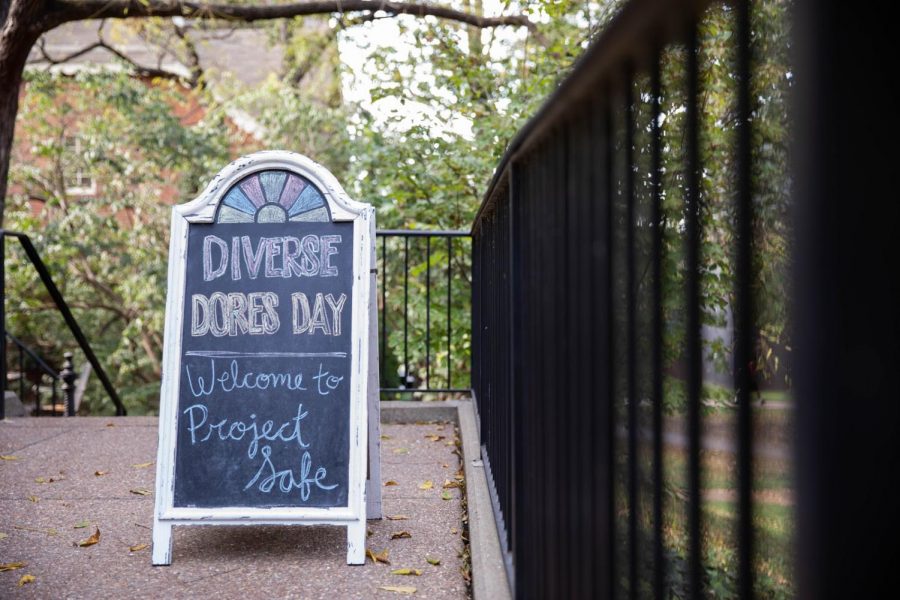 DIVERSE
DORES DAY
Welcome to
Project
Safe